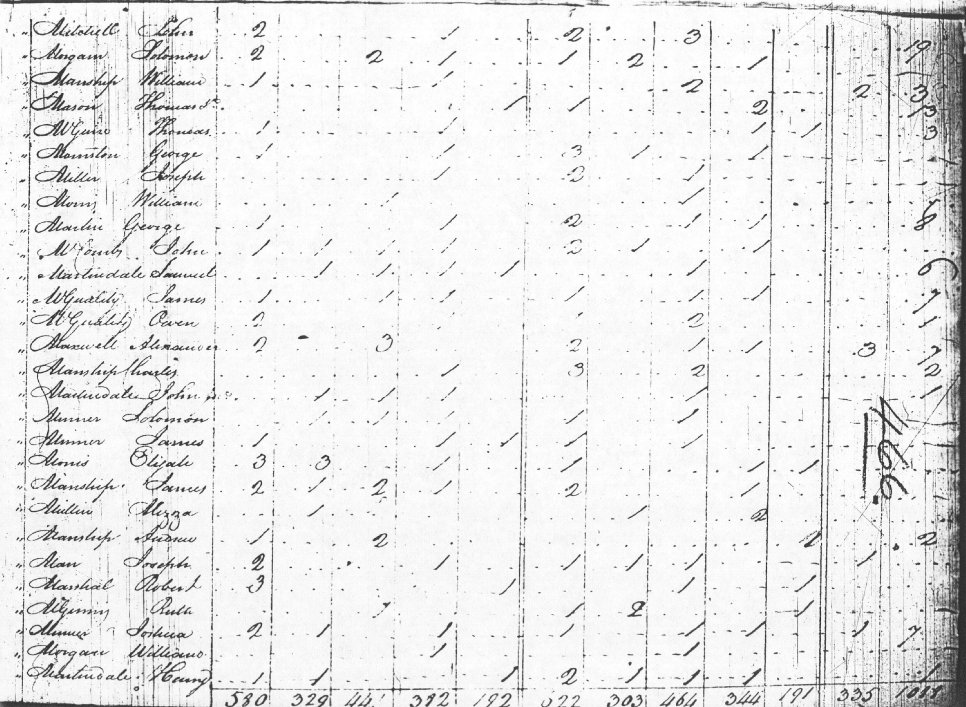 " Mitchell John 2 . . 1 . 2 . 3
" Morgain Solomon 2 . 2 1 . 1 2 . 1 . . 19
" Manship William 1 . . 1 . . . 2 . . 2 3
" Mason Thomas . . . . 1 1 . . 2 . . 13
" McGuire Thomas 1 . . 1 . . . . 1 1 . 3
" George 1 . . 1 . 3 1 . 1
" Miller Joseph . . . 1 . 2 . 1
" William . . 1 . . . . 1
" Martin George 1 . . 1 . 2 . 1 1 . . 8
" McCombs John 1 1 1 1 . 2 1 . 1
" Martindale Samuel . 1 1 1 1 . . 1 . . . 6
" McQuality James 1 . 1 1 . 1 . 1 1 . . 7
" McQuality Owen 2 . . 1 . 1 . 2
" Maxwell Alexander 2 . 3 . . 2 . 1 1 . 3 7
" Manship Charles . . . 1 . 3 . 2 . . . 12
" Martindale John . 1 1 1 . 1 . 1 . . . 1
" Minner Solomon . 1 1 1 . 1 . 1
" Minner James 1 . . 1 1 1 . 1
466.
" Elijah 3 3 . 1 . 1 . . 1 1
" Manship James 2 1 2 1 . 2 . . 1
" . 1 . . . . 1 . 2
" Manship Andrew 1 . 2 . . . . . . 1 . 2
" Man Joseph 2 . . 1 . 1 1 1 1 . 1
" Marshal Robert 3 . . . 1 . . 1 . 1
" McGinny Ruth . . 1 . . 1 2 . . 1
" Minner Joshua 2 1 . 1 . 1 . 1 1 . 1 7
" Morgan William . . . 1 . . . 1
" Martindale Henry 1 1 . . 1 2 1 1 1 . . 1
580 329 441 392 192 522 303 464 344 191 335